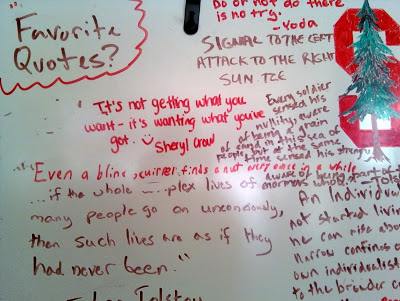 Favorite
Quotes?
Do or not do there
is no try.
- Yoda
SIGNAL TO THE LEFT
ATTACK TO THE RIGHT
SUN TZE
It's not getting what you
want - it's wanting what you've
got. :)
Sheryl Crow
Every soldier
sensed his
nullity, aware
of being a grain
of sand in this sea of
people, but at the same
time sensed his strength,
aware of being part of
enormous whole.
Even a blind finds a nut once in a while
...if the whole lives of
many people go on unconsciously,
then such lives are as if they
had never been."
Tolstoy
An individual
not started living
he can rise
narrow confines
own individualist
to the broader
S